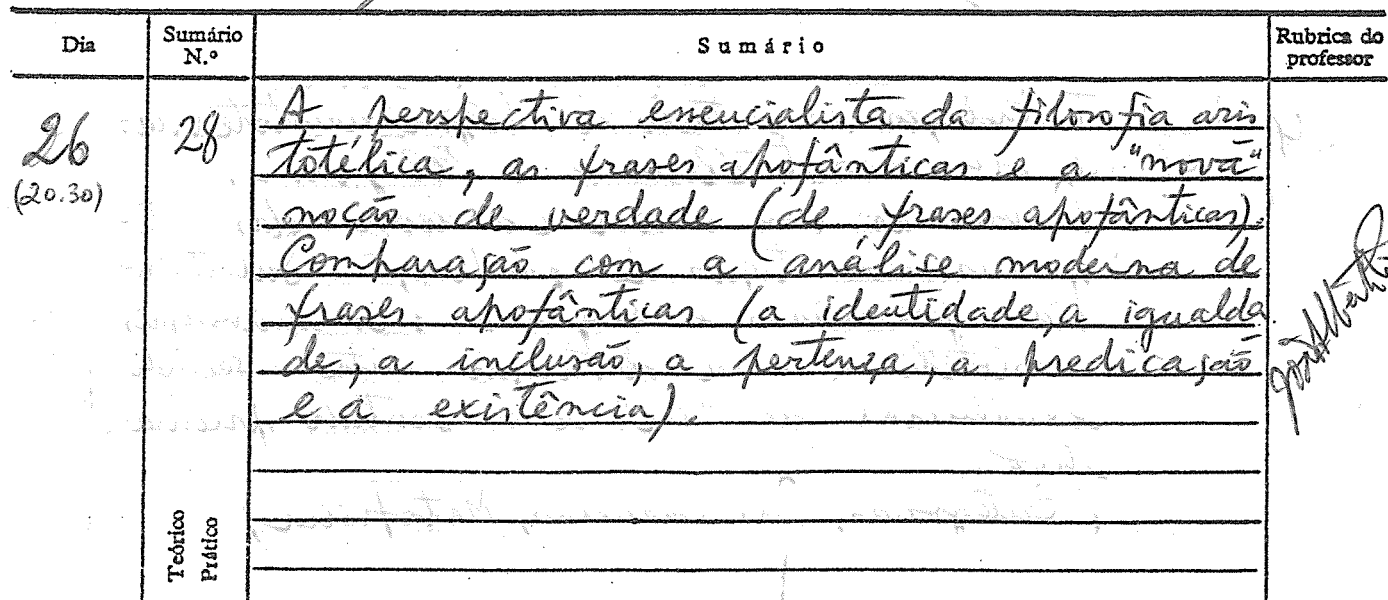 Dia Sumário N.º Sumário Rubrica do professor
26 28 A perspectiva essencialista da filosofia aris
totélica, as frases apofânticas e a "nova"
(20.30)
noção de verdade (de frases apofânticas).
Comparação com a análise moderna de
frases apofânticas (a identidade, a igualda
de, a inclusão, a pertença, a predicação
e a existência).
Teórico
Prático